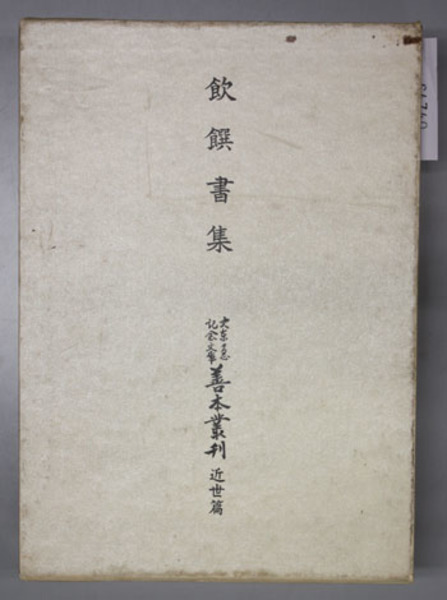 飲饌書集
大東急
記念文庫
善本叢刊
近世篇